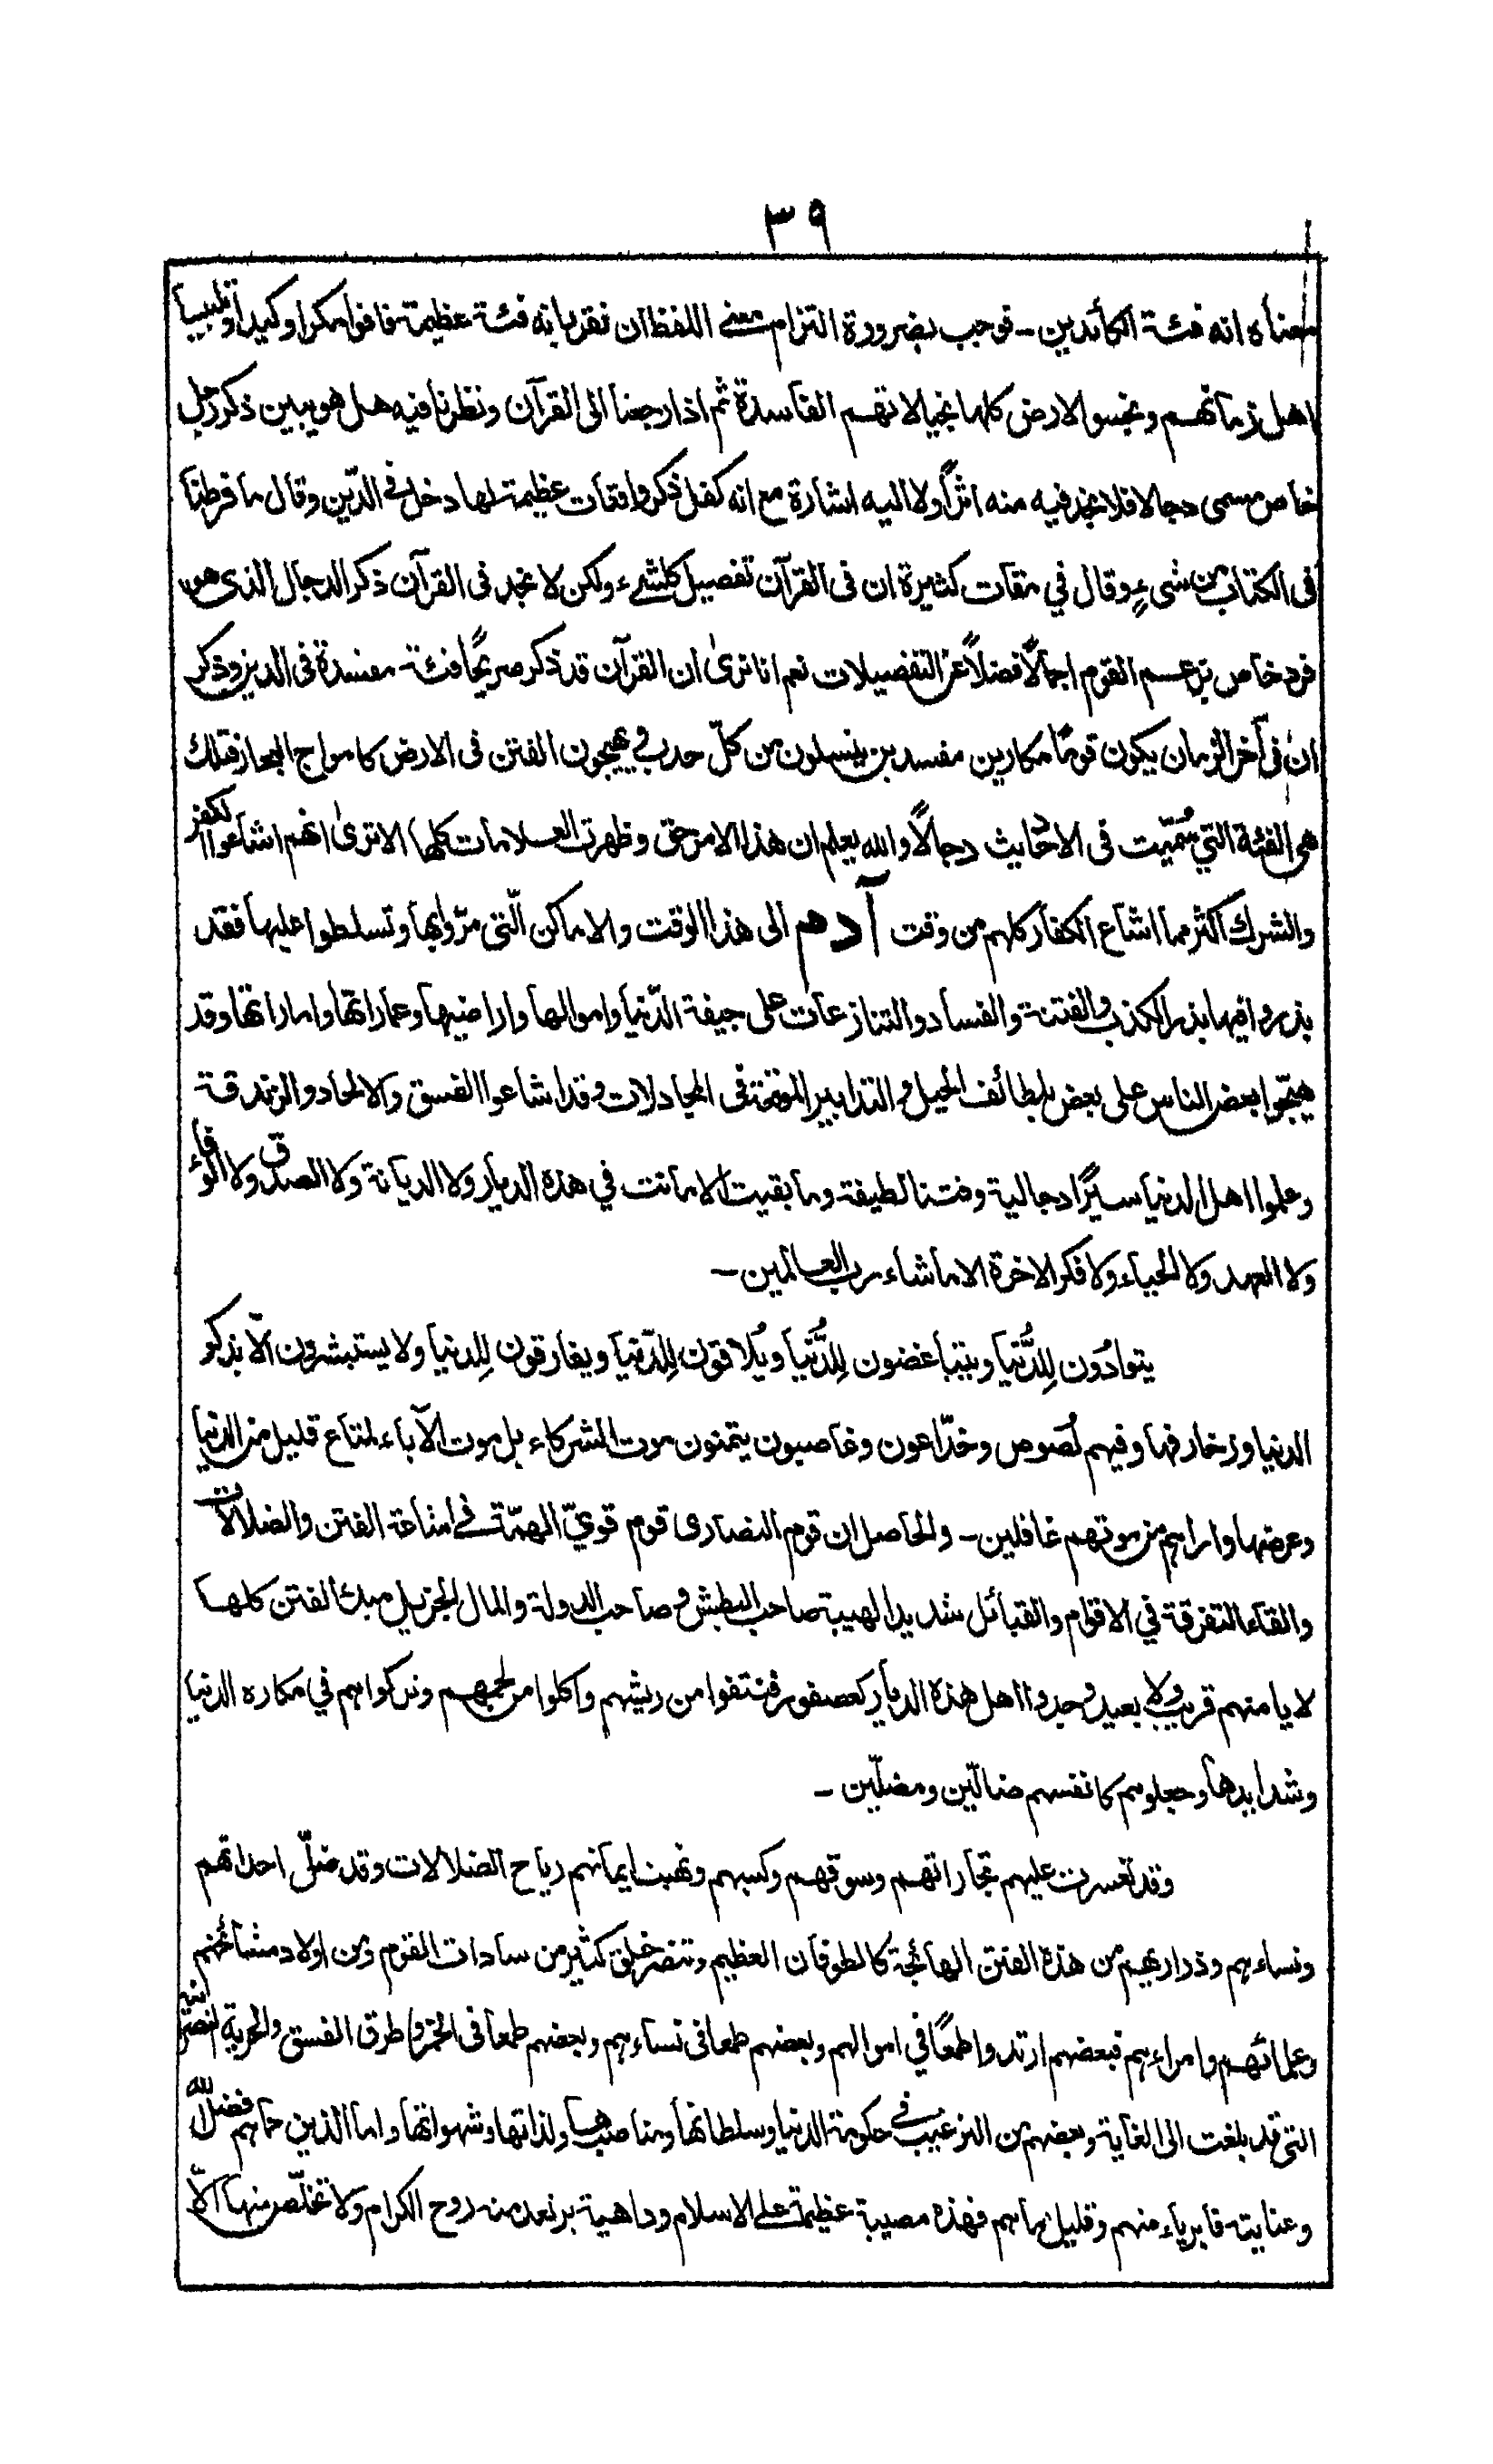 ٣٩
معناه انه فئة الكائدين۔ توجب بضرورة التزام معنى اللفظ ان نقر بانه فئة عظيمة فاقوا مكرا وكيدا وتلبيسا
اهل زمانهم ونجسو الارض كلها بخيالاتهم الفاسدة ثم اذا رجعنا الى القرآن ونظرنا فيه هل هو يبين ذكر رجل
خاص مسمى دجالا فلا نجد فيه منه اثرًا ولا اليه اشارة مع انه كفل ذكر واقعات عظيمة لها دخل فى الدّين وقال ما فرطنا
فى الكتاب من شىءٍ وقال في مقات كثيرة ان فى القرآن تفصيل كلشىء ولكن لا نجد فى القرآن ذكر الدجال الذى هو
فرد خاص بزعم القوم اجمالًا فضلًا عن التفصيلات نعم انا نرىٰ ان القرآن قد ذكر صريحًا فئة مفسدة فى الدين وذكر
ان فى آخر الزمان يكون قومًا مكارين مفسدين ينسلون من كلّ حدب ويهيجون الفتن فى الارض كامواج البحار فتلك
هى الفئة التي سُمّيت فى الاحاديث دجالًا والله يعلم ان هذا الامر حق وظهرت العلامات كلها الا ترىٰ انهم اشاعوا الكفر
والشرك اكثر مما اشاع الكفار كلهم من وقت آدم الى هذا الوقت والاماكن الّتى مرّوا بها وتسلطوا عليها فقد
بذروا فيها بذر الكذب والفتنة والفساد والتنازعات على جيفة الدّنيا واموالها واراضيها وعماراتها واماراتها وقد
هيّجوا بعض الناس على بعض بلطائف الحيل والتدابير الموقعة فى المجادلات وقد اشاعوا الفسق والالحاد والزندقة
وعلموا اهل الدنيا سيرًا دجالية وفتنا لطيفة وما بقيت الامانت في هذه الديار ولا الديانة ولا الصدق ولا الوفاء
ولا العهد ولا الحياء ولا فكر الاخرة الا ماشاء رب العالمين۔
يتوادّون لِلدُّنيا ويتباغضون لِلدُّنيا ويُلاقون لِلدّنيا ويفارقون لِلدنيا ولا يستبشرون الّا بذكر
الدنيا وزخارفها وفيهم لُصوص وخدّاعون وغاصبون يتمنون موت الشركاء بل موت الآباء لمتاع قليل من الدنيا
وعرضها واراهم من موتهم غافلين۔ والحاصل ان قوم النصارى قوم قويّ الهمّة فى اشاعة الفتن والضلالات
والقاء التفرقة في الاقوام والقبائل شديد الهيبة صاحب البطش وصاحب الدولة والمال الجزيل مبدء الفتن كلها
لا يامنهم قريب ولا بعيد وجدوا اهل هذه الديار كعصفور فنتفوا من ريشهم واكلوا من لحمهم وتركواهم في مكاره الدنيا
وشدايدها وجعلوهم كانفسهم ضالّين ومضلّين۔
وقد تعسرت عليهم تجاراتهم وسوقهم وكسبهم ونهبت ايمانهم رياح الضلالات وقد ضلّ احداثهم
ونساءهم وذراريهم من هذة الفتن الهائجة كالطوفان العظيم وتنصر خلق كثير من سادات القوم ومن اولاد مشائخهم
وعلمائهم وامراءهم فبعضهم ارتدوا طمعًا في اموالهم وبعضهم طمعا فى نساءهم وبعضهم طمعا فى الخمر وطرق الفسق والحرية النصرانية
التى قد بلغت الى الغاية وبعضهم من الترغيب فى حكومة الدنيا وسلطانها ومناصبها ولذاتها وشهواتها واما الذين حماهم فضل الله
وعنايته فابرياء منهم وقليل ماهم فهذه مصيبة عظيمة على الاسلام وداهية يرتعد منه روح الكرام ولا تخلّص منها الّا